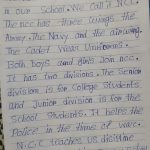 in our School. We call a N.C.C.
The ncc has three wings the
Army. The Navy. and the airwing.
The Cadet wear Uniforms.
Both boys and girls Join ncc.
It has two divisions. The Senior
division is for College Students
and Junior division is for the
School Students. It helps the
Police in the times of war.
N.C.C teaches us